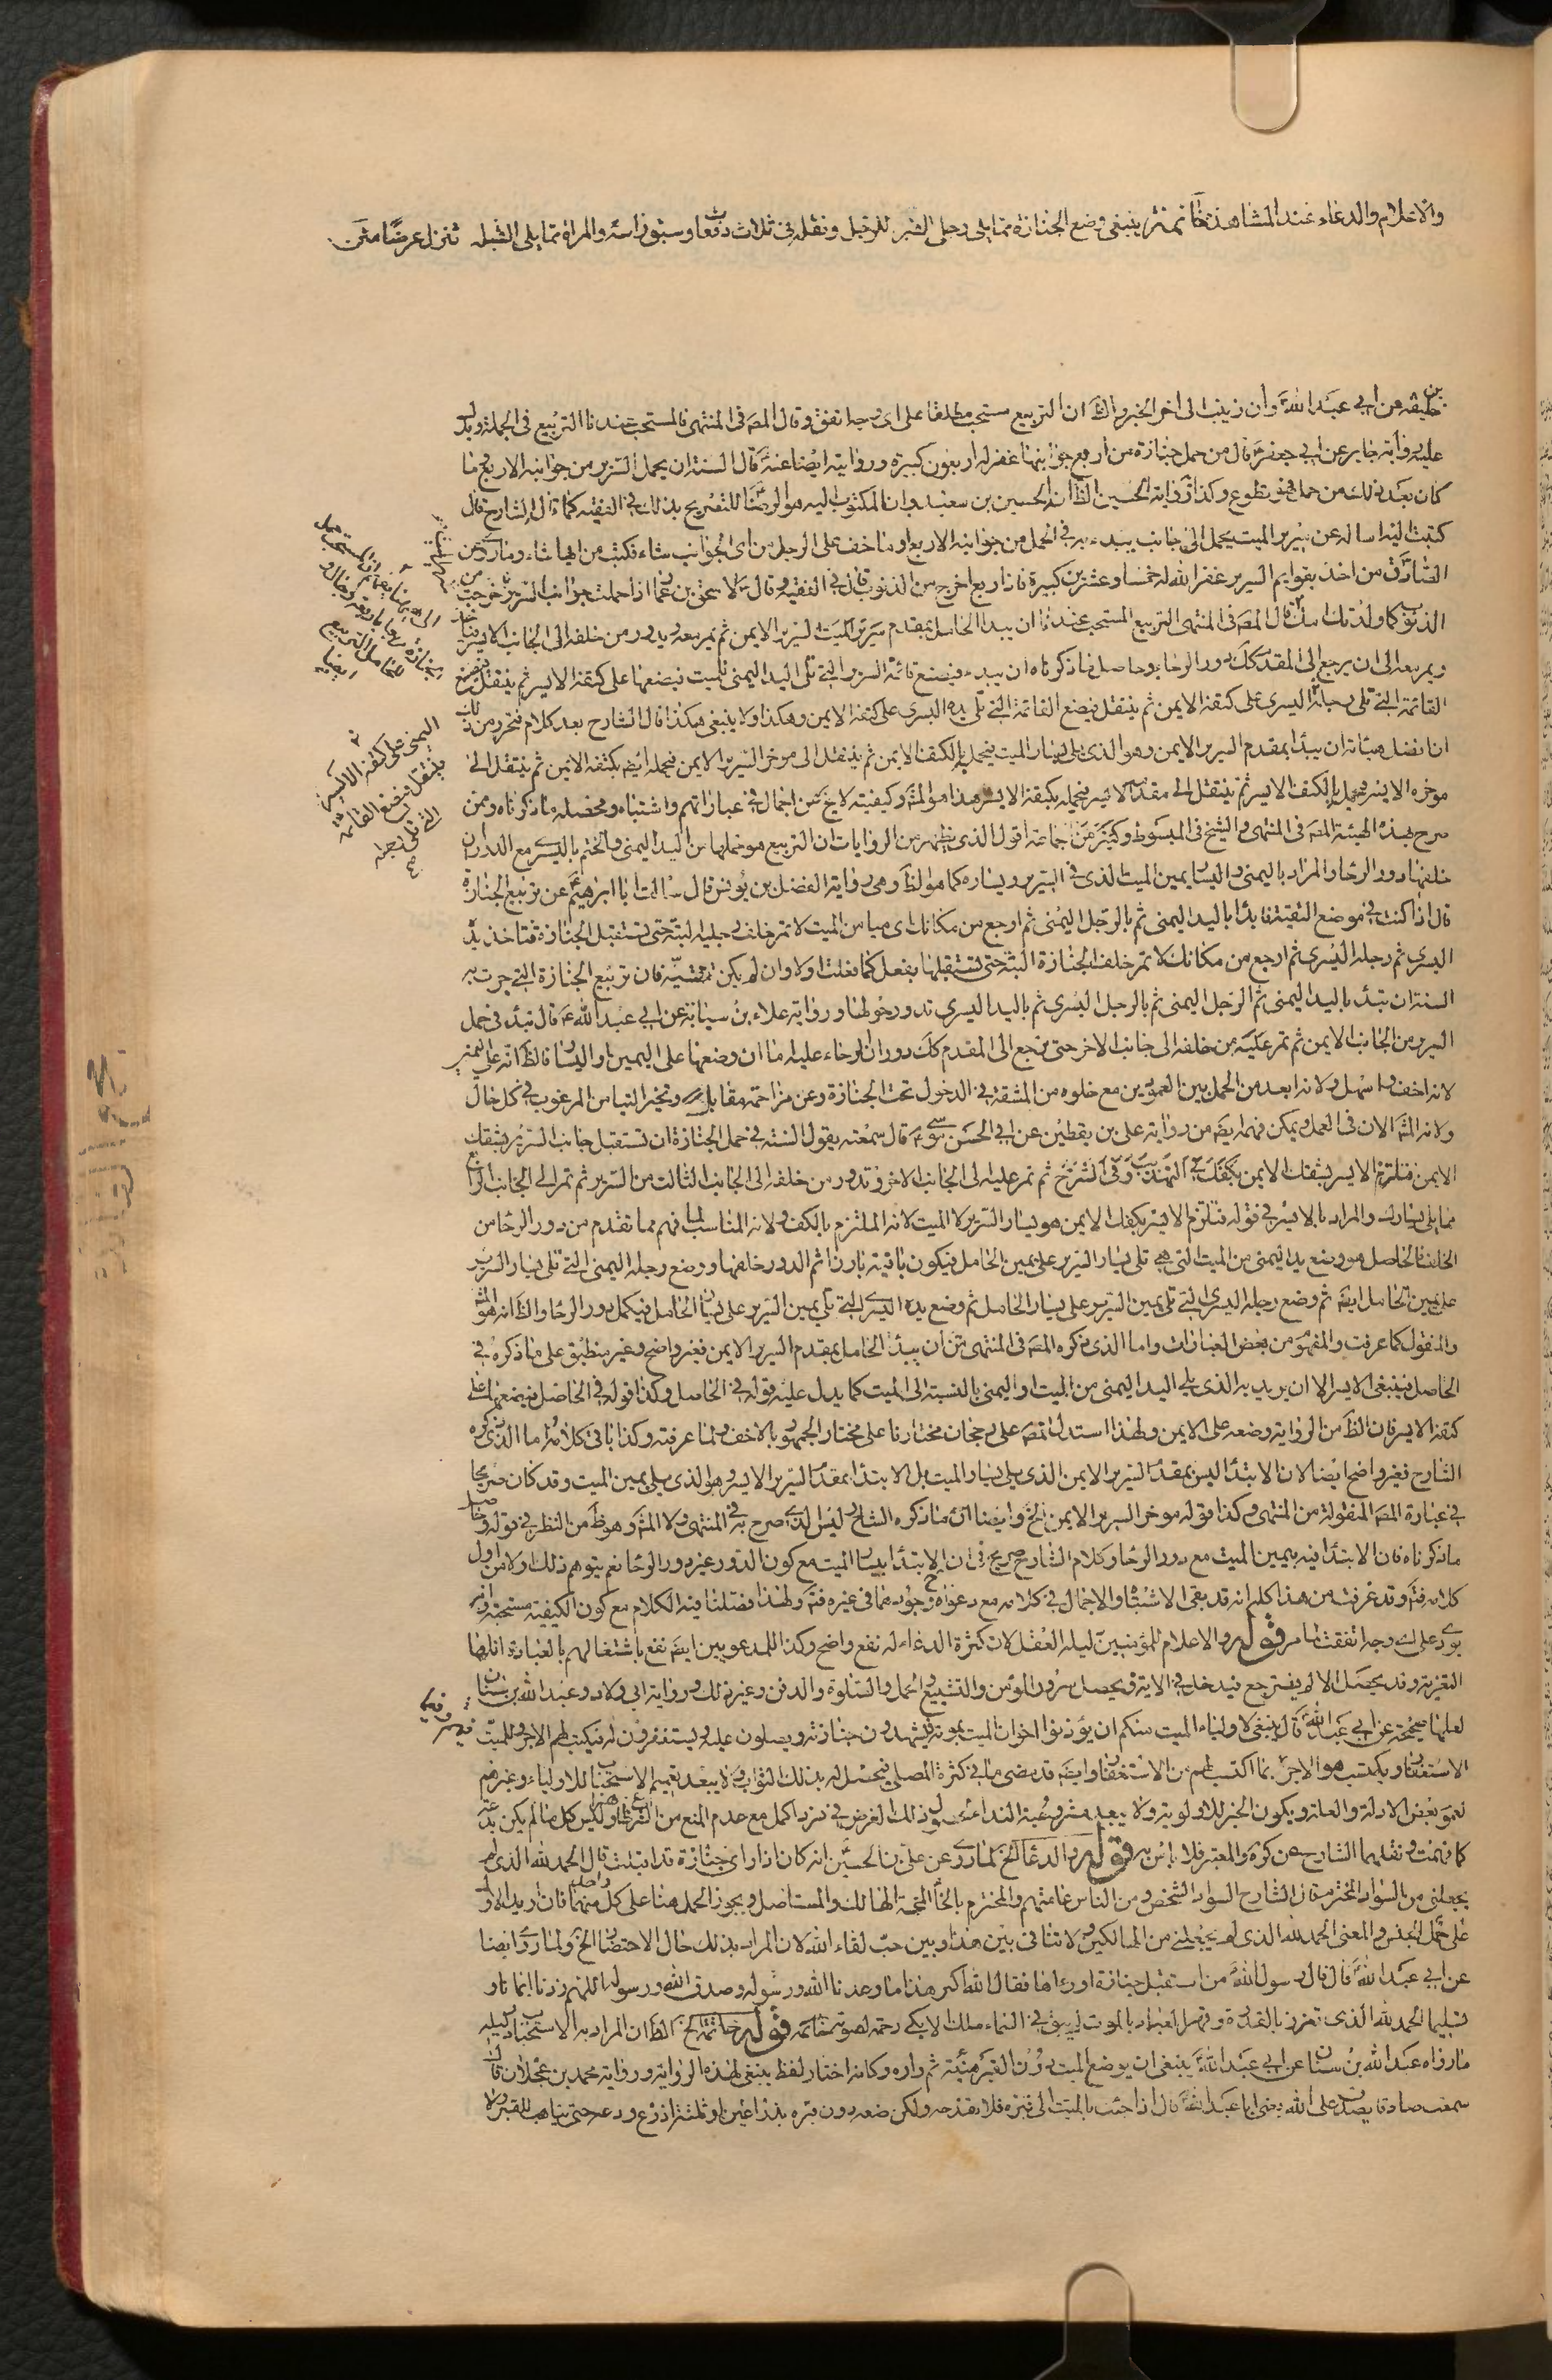 والاعلام والدعاء عند المشاهدة خاتمة ينبغي وضع الجنازة مما يلي رجل القبر للرجل ونقله في ثلاث دفعات وسبق راسه والمراة مما يلي القبلة تنزل عرضا
عن ابي عبد الله وان زينب الى اخر الخبر والظ ان التربيع مستحب مطلقا على اي وجه اتفق وقال المص في المنتهى المستحب عندنا التربيع في الجملة
عليه رواية جابر عن ابي جعفر قال من حمل جنازة من اربع جوانبها غفر له اربعون كبيرة وروايته ايضا عنه قال السنة ان يحمل السرير من جوانبه الاربع وما
كان بعد ذلك من حمل فهو تطوع وكذا رواية الحسين الظ انه الحسين بن سعيد وان المكتوب اليه هو الرضا للتصريح بذلك في الفقيه كما قال الشارح قال
كتبت اليه اساله عن سرير الميت يحمل اله جانب يبدء به في الحمل من جوانبه الاربع او ما خف على الرجل من اي الجوانب شاء فكتب من ايها شاء وما روي عن
الصادق من اخذ بقوايم السرير غفر الله له خمسا وعشرين كبيرة فاذا ربع اخرج من الذنوب قال في الفقيه وقال لاسحق بن عمار اذا حملت جوانب السرير خرجت من
الذنوب كما ولدتك امك قال المص في المنتهى التربيع المستحب عندنا ان يبدا الحامل بمقدم سرير الميت السرير الايمن ثم يمر معه ويدور من خلفه الى الجانب الايسر
ويمر معه الى ان يرجع الى المقدم كك دور الرحا وحاصل ما ذكرناه ان يبدء فيضع قائمة السرير التي تلي اليد اليمنى للميت فيضعها على كتفه الايسر ثم ينتقل فيضع
القائمة التي تلي رجله اليسرى على كتفه الايمن ثم ينتقل فيضع القائمة التي تلي يده اليسرى على كتفه الايمن وهكذا ولا ينبغي هكذا قال الشارح بعد كلام
ان افضل هيئاته ان يبدأ بمقدم السرير الايمن وهو الذي يلي يسار الميت فيحمله بالكتف الايمن ثم ينتقل الى موخر السرير الايمن فيحمله ايض بكتفه الايمن ثم ينتقل الى
موخره الايسر فيحمله بالكتف الايسر ثم ينتقل الى مقدمه الايسر فيحمله بكتفه الايسر هذا هو المش وكيفيته لا يخ عن اجمال في عباراتهم واشتباه ومحصله ما ذكرناه وممن
صرح بهذه الهيئة المص في المنتهى والشيخ في المبسوط وكثير من جماعة اقول الذي يظهر من الروايات ان التربيع هو حملها من اليد اليمنى والختم باليسرى مع الدوران
خلفها دور الرحا والمراد باليمنى واليسار يمين الميت الذي في السرير ويساره كما هو الظ وهي رواية الفضل بن يونس قال سالت ابا ابرهيم عن تربيع الجنازة
قال اذا كنت في موضع التقية فابدأ باليد اليمنى ثم بالرجل اليمنى ثم ارجع من مكانك الى ميامن الميت لا تمر خلف رجليه البتة حتى تستقبل الجنازة فتاخذ يده
اليسرى ثم رجله اليسرى ثم ارجع من مكانك لا تمر خلف الجنازة البتة حتى تستقبلها تفعل كما فعلت اولا وان لم يكن تتقي فيه فان تربيع الجنازة التي جرت به
السنة ان تبدأ باليد اليمنى ثم بالرجل اليمنى ثم بالرجل اليسرى ثم باليد اليسرى تدور حولها ورواية علاء بن سيابة عن ابي عبد الله ع قال تبدء في حمل
السرير من الجانب الايمن ثم تمر عليه من خلفه الى جانب الاخر حتى ترجع الى المقدم كك دوران الرحاء عليه اما ان وضعها على اليمين او اليسار فالظ انه على اليمنى
لانه اخف واسهل ولانه ابعد من الحمل بين العمودين مع خلوه من المشقة في الدخول تحت الجنازة وعن مزاحمة مقابله وتخير التيامن المرغوب في كل حال
ولانه المش الان في العمل ويمكن فهمه ايض من رواية علي بن يقطين عن ابي الحسن موسى ع قال سمعته يقول السنة في حمل الجنازة ان تستقبل جانب السرير بشقك
الايمن فتلزم الايسر بشقك الايمن بكفك في التهذيب وفي الشرح ثم تمر عليه الى الجانب الاخر وتدور من خلفه الى الجانب الثالث من السرير ثم تمر الى الجانب الرابع
مما يلي يسارك والمراد بالايسر في قوله فتلزم الايسر بكفك الايمن هو يسار السرير لا الميت لانه الملتزم بالكف ولانه المناسب لما فهم مما تقدم من دور الرحا من
الخلف فالحاصل هو وضع يد اليمنى من الميت التي هي تلي يسار السرير على يمين الحامل فيكون باقيه بارزا ثم الدور خلفها ووضع رجله اليمنى التي تلي يسار السرير
على يمين الحامل ايض ثم وضع رجله اليسرى التي تلي يمين السرير على يسار الحامل ثم وضع يده اليسرى التي تلي يمين السرير على يسار الحامل فيكمل دور الرحا والظ انه هو المش
والمنقول كما عرفت والمفهوم من بعض العبارات واما الذي ذكره المص في المنتهى من ان يبدأ الحامل بمقدم السرير الايمن فغير واضح وغير منطبق على ما ذكره في
الحاصل فينبغي الايسر الا ان يريد به الذي يلي اليد اليمنى من الميت او اليمنى بالنسبة الى الميت كما يدل عليه قوله في الحاصل وكذا قوله في الحاصل فيضعها على
كتفه الايسر فان الظ من الرواية وضعه على الايمن ولهذا استدل المص على رجحان مختارنا على مختار الجمهور بالاخف ولما عرفته وكذا باقي كلامه اما الذي ذكره
الشارح فغير واضح ايضا لان الابتدأ ليس بمقدم السرير الايمن الذي يلي يسار الميت بل الابتدا بمقدم السرير الايسر وهو الذي يلي يمين الميت وقد كان صريحا
في عبارة المص المنقولة من المنتهى وكذا قوله موخر السرير الايمن الخ وايضا ان ما ذكره الشارح ليس الذي صرح به في المنتهى ولا المش وهو ظ من النظر في قوله وحاصل
ما ذكرناه فان الابتدا فيه بيمين الميت مع دور الرحا وكلام الشارح صريح في ان الابتدا بيسار الميت مع كون الدور غير دور الرحا نعم يتوهم ذلك اولا من اول
كلامه فت وقد عرفت من هذا كله انه قد بقي الاشتباه والاجمال في كلامه مع دعواه وجودهما في غيره فت ولهذا فصلنا فيه الكلام مع كون الكيفية مستحبة
على اي وجه اتفقت لما مر قوله والاعلام للمؤمنين دليله العقل لان كثرة الدعاء له نفع واضح وكذا للمدعوين ايض نفع باشتغالهم بالعبادة اقلها
التعزية وقد يحصل الالم فيسترجع فيدخل في الاية ويحصل سرور المؤمن والتشييع والحمل والصلوة والدفن وغير ذلك ورواية ابي ولاد وعبد الله بن سنان
لعلها صحيحة عن ابي عبد الله قال ينبغي لاولياء الميت منكم ان يؤذنوا اخوان الميت بموته فيشهدون جنازته ويصلون عليه ويستغفرون له فيكتب لهم الاجر وللميت
الاستغفار ويكتسب هو الاجر بما اكتسب لهم من الاستغفار وايض قد مضى ما في كثرة المصلي فيحصل له بذلك الثواب ولا يبعد تعميم الاستحباب للاولياء وغيرهم
لعموم بعض الادلة والعلة ويكون الخبر للاولوية ولا يبعد مشروعية النداء لحصول ذلك الغرض في فرد اكمل مع عدم المنع من الشرع وليس كل ما لم يكن بدعة
كما فهمت ونقلهما الشارح عن كره والمعتبر فلا باس به قوله والدعاء الخ لما روي عن علي بن الحسين انه كان اذا راى جنازة قد اقبلت قال الحمد لله الذي لم
يجعلني من السواد المخترم قال الشارح السواد الشخص ومن الناس عامتهم والمخترم بالخاء المعجمة الهالك والمستاصل ويجوز الحمل هنا على كل واحد منهما فان اريد الاول
على الجنس والمعنى الحمد لله الذي لم يجعلني من الهالكين ولا تنافى بين هذا وبين حب لقاء الله لان المراد بذلك حال الاحتضار الخ ولما روي ايضا
عن ابي عبد الله قال قال رسول الله من استقبل جنازة او رءاها فقال الله اكبر هذا ما وعدنا الله ورسوله وصدق الله ورسوله اللهم زدنا ايمانا و
تسليما الحمد لله الذي تعزز بالقدرة وقهر العباد بالموت لم يبق في السماء ملك الا بكى رحمة لصوته قوله خاتمة الخ الظ ان المراد به الاستحباب دليله
ما رواه عبد الله بن سنان عن ابي عبد الله ينبغي ان يوضع الميت دون القبر هنيئة ثم واره وكانه اختار لفظ ينبغي لهذه الرواية ورواية محمد بن عجلان قال
سمعت صادقا يصدق على الله يعني ابا عبد الله قال اذا جئت بالميت الى قبره فلا تفدحه ولكن ضعه دون قبره بذراعين او ثلثة اذرع ودعه حتى يتاهب للقبر ولا
اليمنى على كتفه الايسر
ينتقل فيضع القائمة
التي تلي رجله